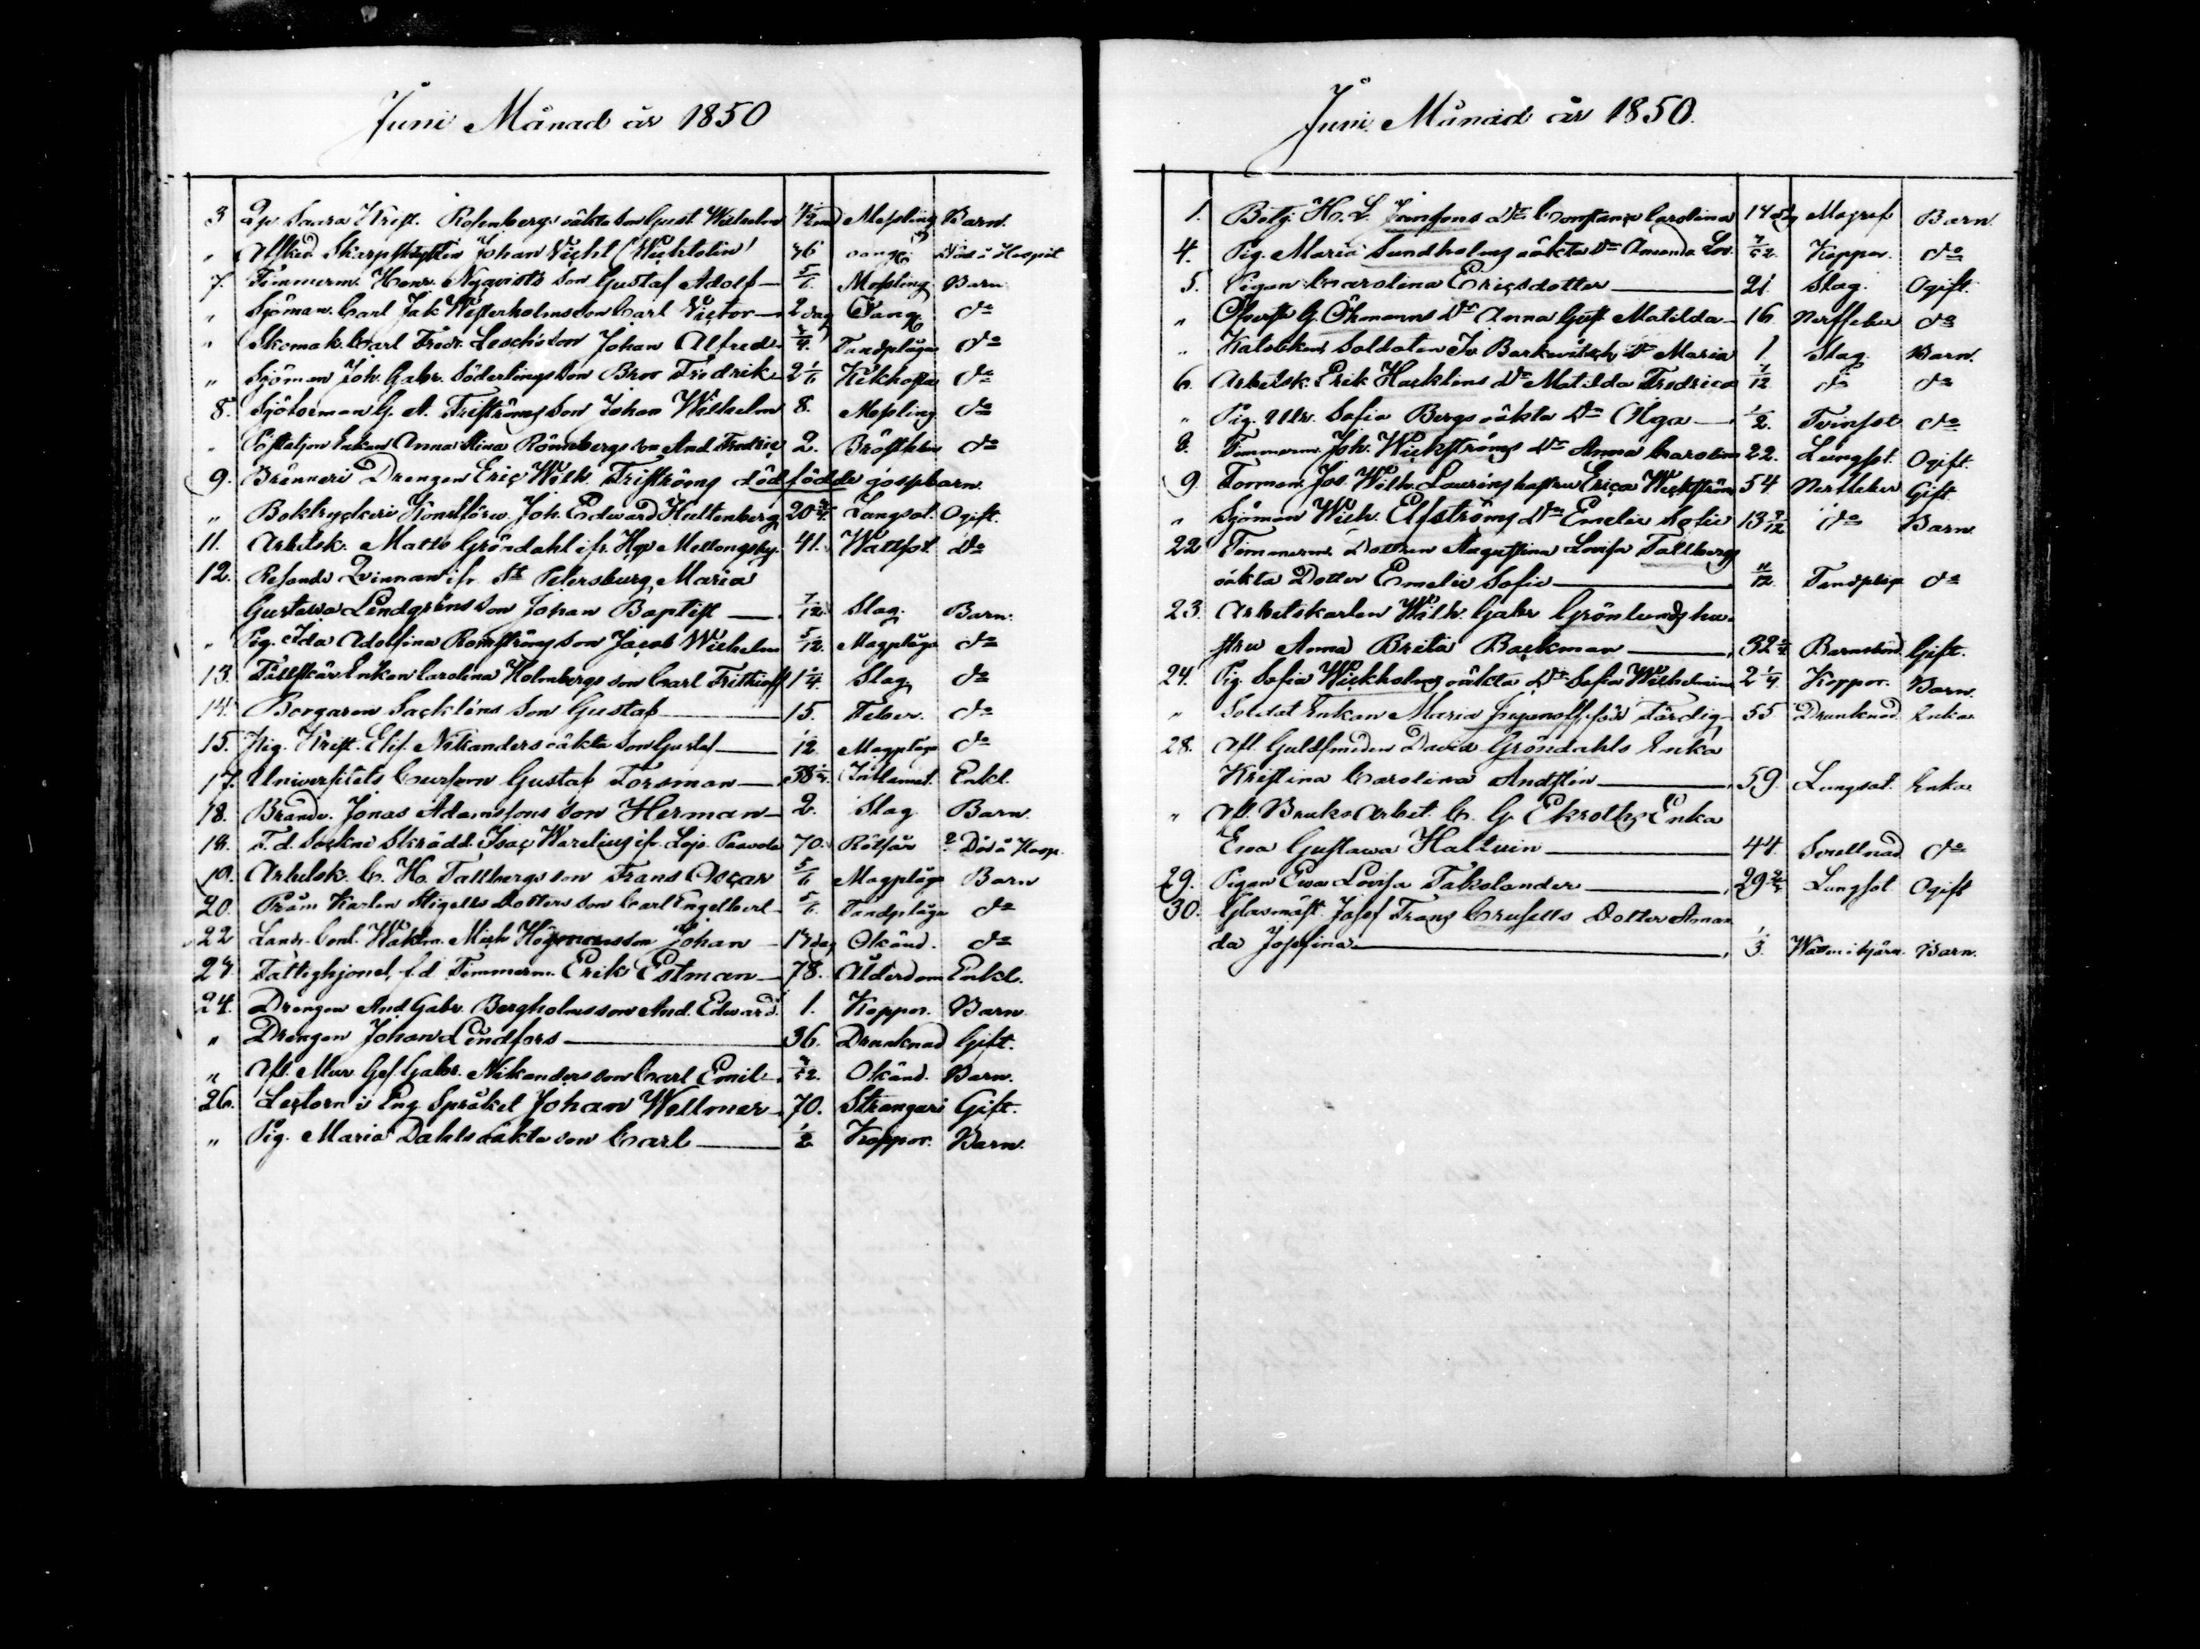 Juni Månad år 1850
3 Qv. Saara Krist. Rosenbergs oäkta Son Gust. Wilhelm ½ Messling Barn.
" Afsked. Skarpskytten Johan Vichl (Wichtolin) 46 Död å Hospit
7. Timmerm. Henr. Nyqvists Son Gustaf Adolf — 5/6 Messling Barn
" Sjöman. Carl Jak Westerholms son Carl Victor — 2 dag do
" Skomak. Carl Fredr. Leschs son Johan Alfred ¾. Tandplåga do
" Sjöman Joh. Gabr. Söderlings Son Bror Fredrik 2 1/6 Kikhosta do
8. Sjötoeman G. A. Friströms Son Johan Wilhelm 8. Messling do
" Enkan Anna Stina Rönnbergs son And. Fredric 2. do
9. Brännéri Drengen Eric Wilh. Friströms dödfödde gossbarn.
" Boktryckeri Konstförv. Joh. Edward Hultenberg 20 Lungsot. Ogift.
11. Arbetsk. Matts Gröndahl ifr. Hgs 41. Wattsot do
12. Resande Qvinnan ifr. St Petersburg, Maria
Gustava Lindgréns Son Johan Baptist — 7/12 Slag. Barn.
" Pig. Ida Adolfina Ramströms Son Jacob Wilhelm 5/12. Magplåga do
13. Fältskär Enkan Carolina Holmbergs son Carl Frithioff 1¼. Slag. do
14. Borgaren Sackléns Son Gustaf — 15. Feber. do
15. Pig. Krist. Elis. Nikanders oäkta Son Gustaf — 1/12 Magplåga do
17. Universitets Cursorn Gustaf Forsman — 58 Inflamat. Enkl.
18. Brandv. Jonas Adamssons Son Herman — 2. Slag Barn.
18. F. d. Sockne Skrädd. Isac Warelius ifr. Lojo 70. Rötsår Död å Hosp.
19. Arbetsk. C. H. Tallbergs son Frans Oscar 5/6 Magplåga Barn
20. Pråm Karlen Stigells Dotters Son Carl Engelbert 5/6. Tandplåga do
22 Landt. Cont. Waktm. Mich Högmans son Johan — 14 dag Okänd. do
24 Fattighjonet, f.d. Timmerm. Erik Estman — 78. Ålderdom Enkl.
24. Drengen And. Gabr. Bergholms son And. Edward 1. Koppor. Barn
" Drengen Johan Lindfors — 36. Drunknad Gift.
" Afl. Mur Ges. Gabr. Nikanders son Carl Emil — Okänd. Barn.
26. Lectorn i Eng. Språket Johan Wellmer — 70. Stranguri Gift.
" Pig. Maria Dahls oäkta son Carl — ½ Koppor. Barn.
Juni Månad år 1850.
1. Betj. H. L. Jansons Dr Constance Carolina 14 dg Barn.
4. Pig. Maria Sundholms oäkta Dr Amanda Lov. Koppor. do
5. Pigan Carolina Ericsdotter — 21. Slag. Ogift.
" G. Öhmanns Dr Anna Gust. Matilda — 16 Nerffeber do
" Katolken, Soldaten Iv. Dr Maria 1. Slag. Barn.
6. Arbetsk. Erik Hacklins Dr Matilda Fredrica 7/12 do do
" Pig. Ulr. Sofia Bergs oäkta Dr Olga — ½. Tvinsot do
8. Timmerm. Joh. Wickströms Dr Anna Carolina 22. Lungsot. Ogift.
9. Forman. Jos. Wilh. Laurins hustru Erica Weckström 54 Nerffeber Gift
" Sjöman Wilh. Elfströms Dr Emelie Sofie 13 do Barn
22 Timmerm. Dottren Augustina Lovisa Tallbergs
oäkta Dotter Emelie Sofie — 11/12. Tandplåga do
23. Arbetskarlen Wilh. Gabr Grönlunds hu-
stru Anna Brita Backman — 32 Barnsbörd Gift.
24. Pig. Sofia Wickholms oäkta Dr Sofia Wilhelmina 2¼ Koppor. Barn.
" Soldat Enkan Maria född Färdig 55 Drunknad Enka
28. Afl. Guldsmeden David Gröndahls Enka
Kristina Carolina Andstén — 59. Lungsot. Enka
" Afl. Bruks Arbet. C. G. Ekroths Enka
Eva Gustava Haltuin — 44. Svullnad do
29. Pigan Eva Lovisa Takolander — 29 Lungsot Ogift
30. Glasmäst. Josef Frans Crusells Dotter Aman
da Josefina — ⅓. Watten i hjärn. Barn.